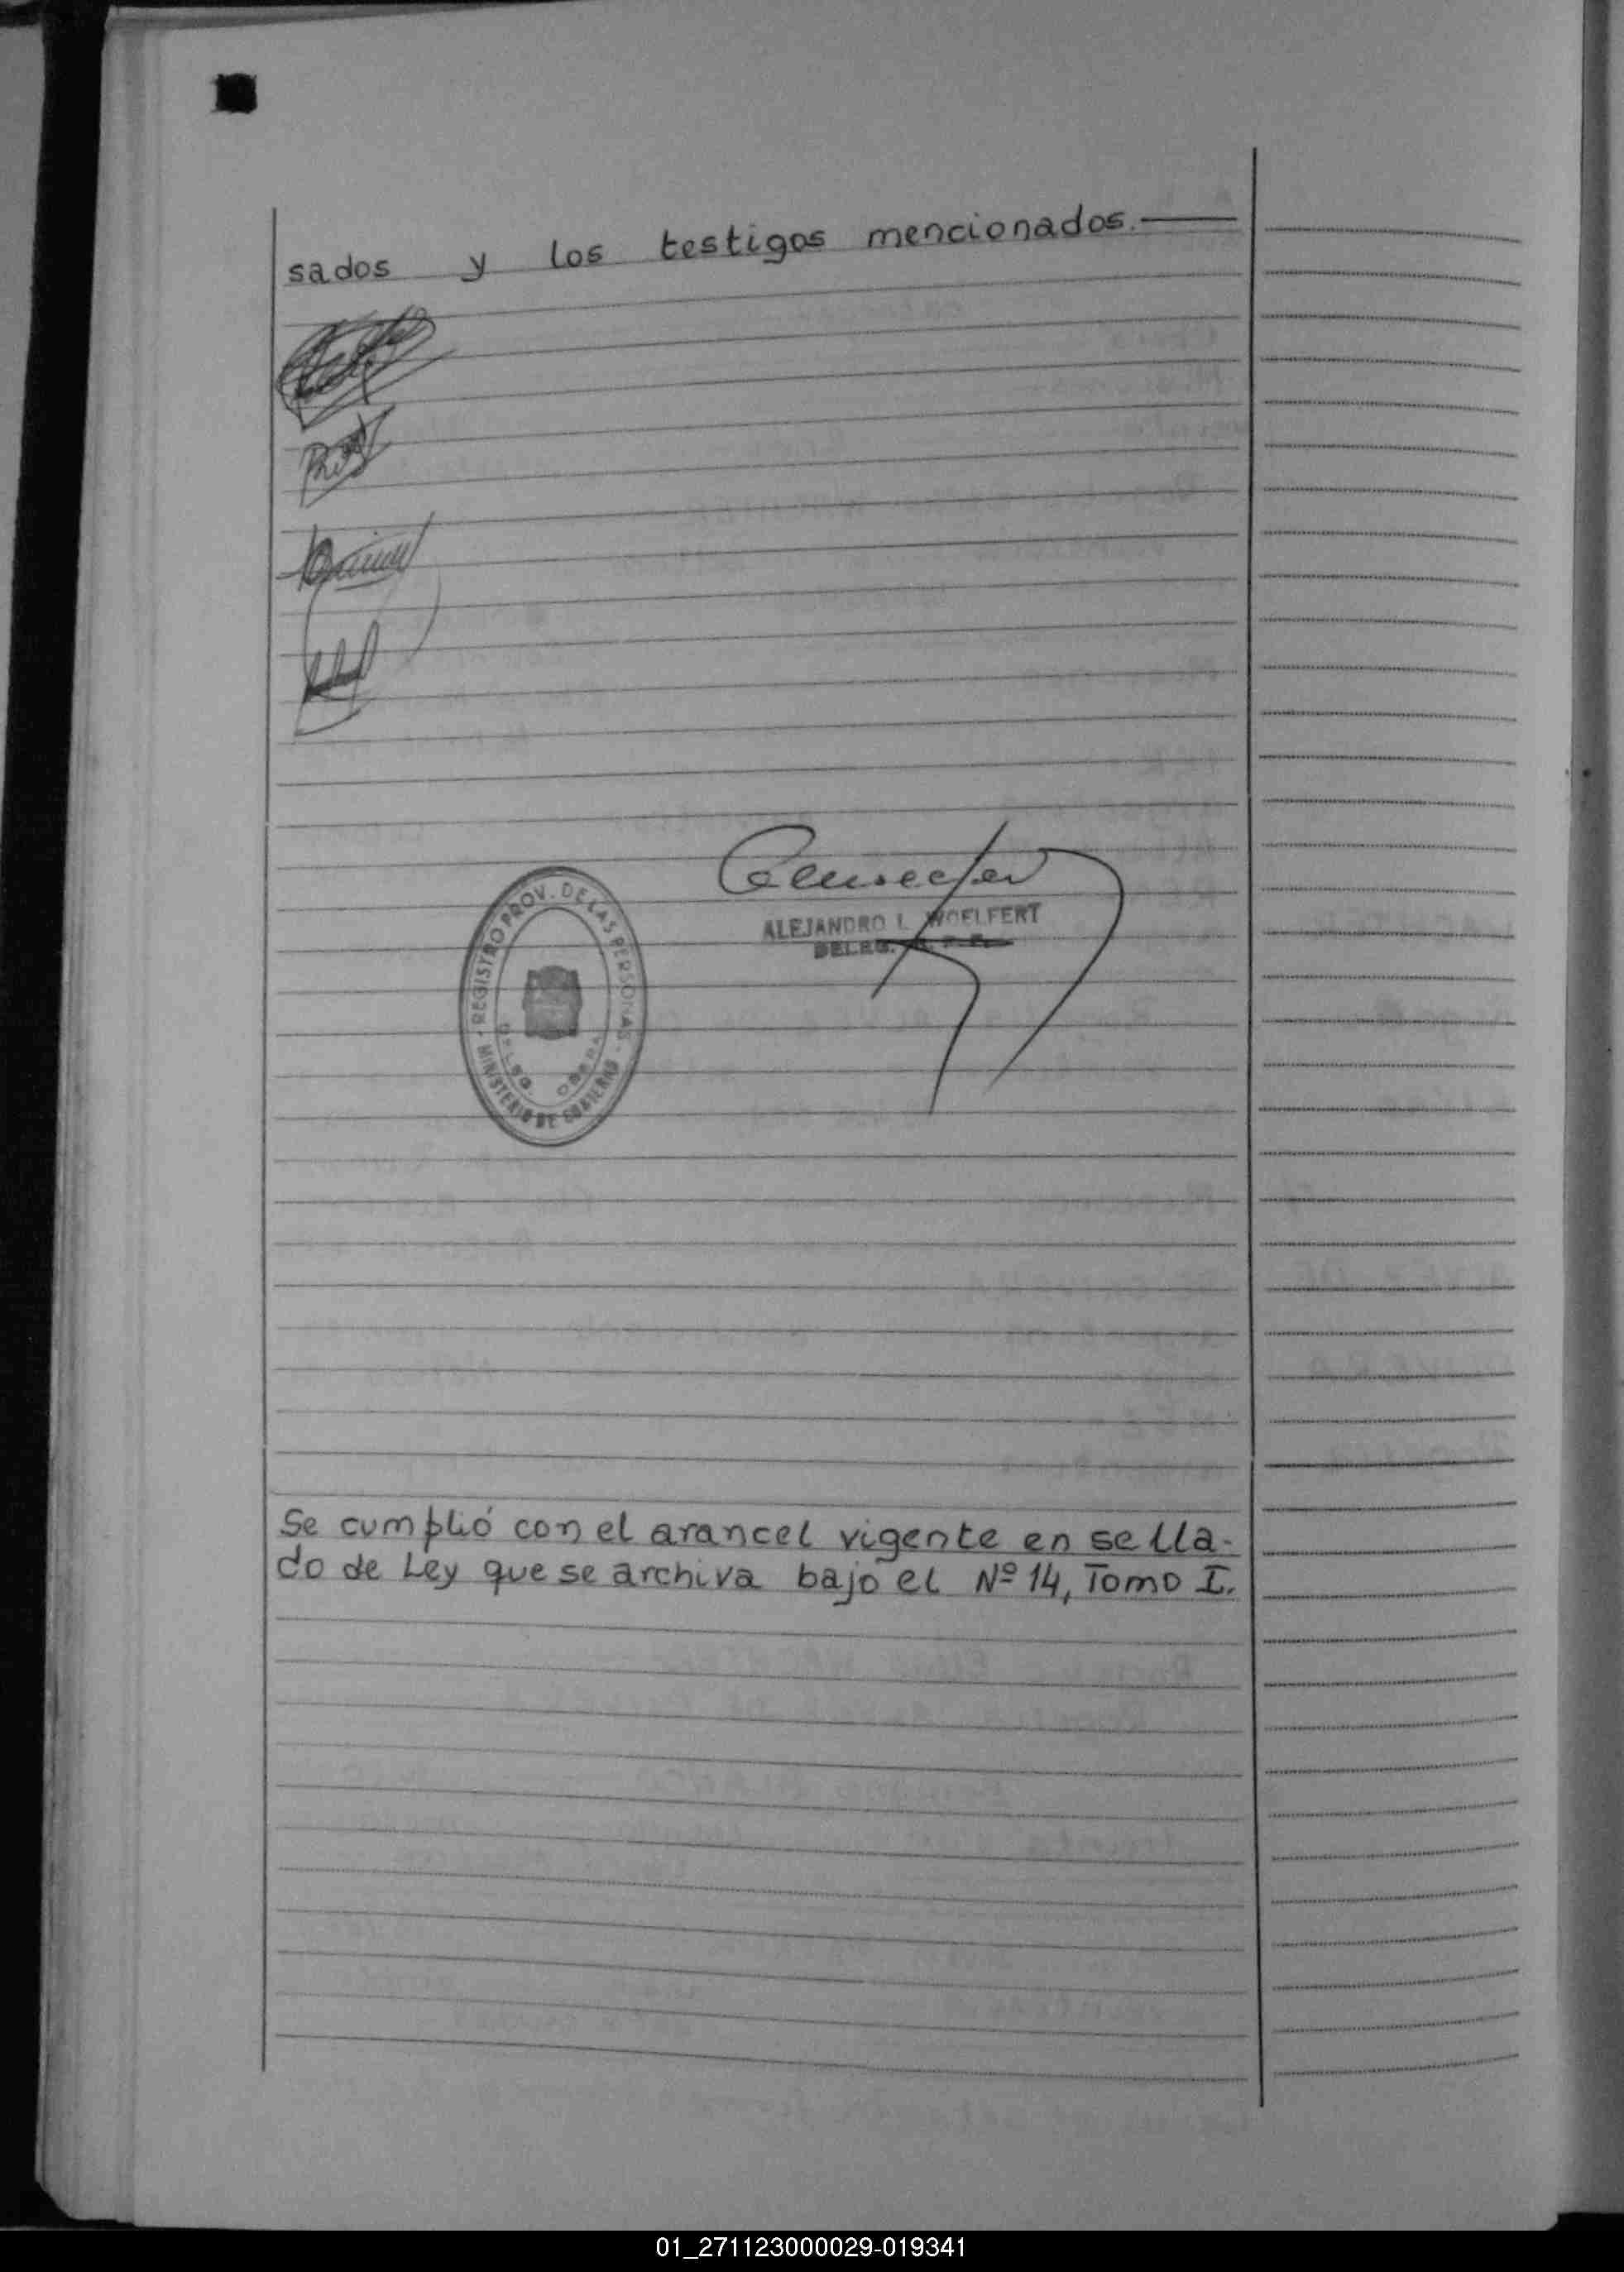 sados y los testigos mencionados.
ALEJANDRO L. WOELFERT
DELEG. R. P. P.
REGISTRO PROV. DE LAS PERSONAS
MINISTERIO DE GOBIERNO
DELEG. OBERA
Se cumplió con el arancel vigente en sella-
do de Ley que se archiva bajo el Nº 14, Tomo I.
01_271123000029-019341